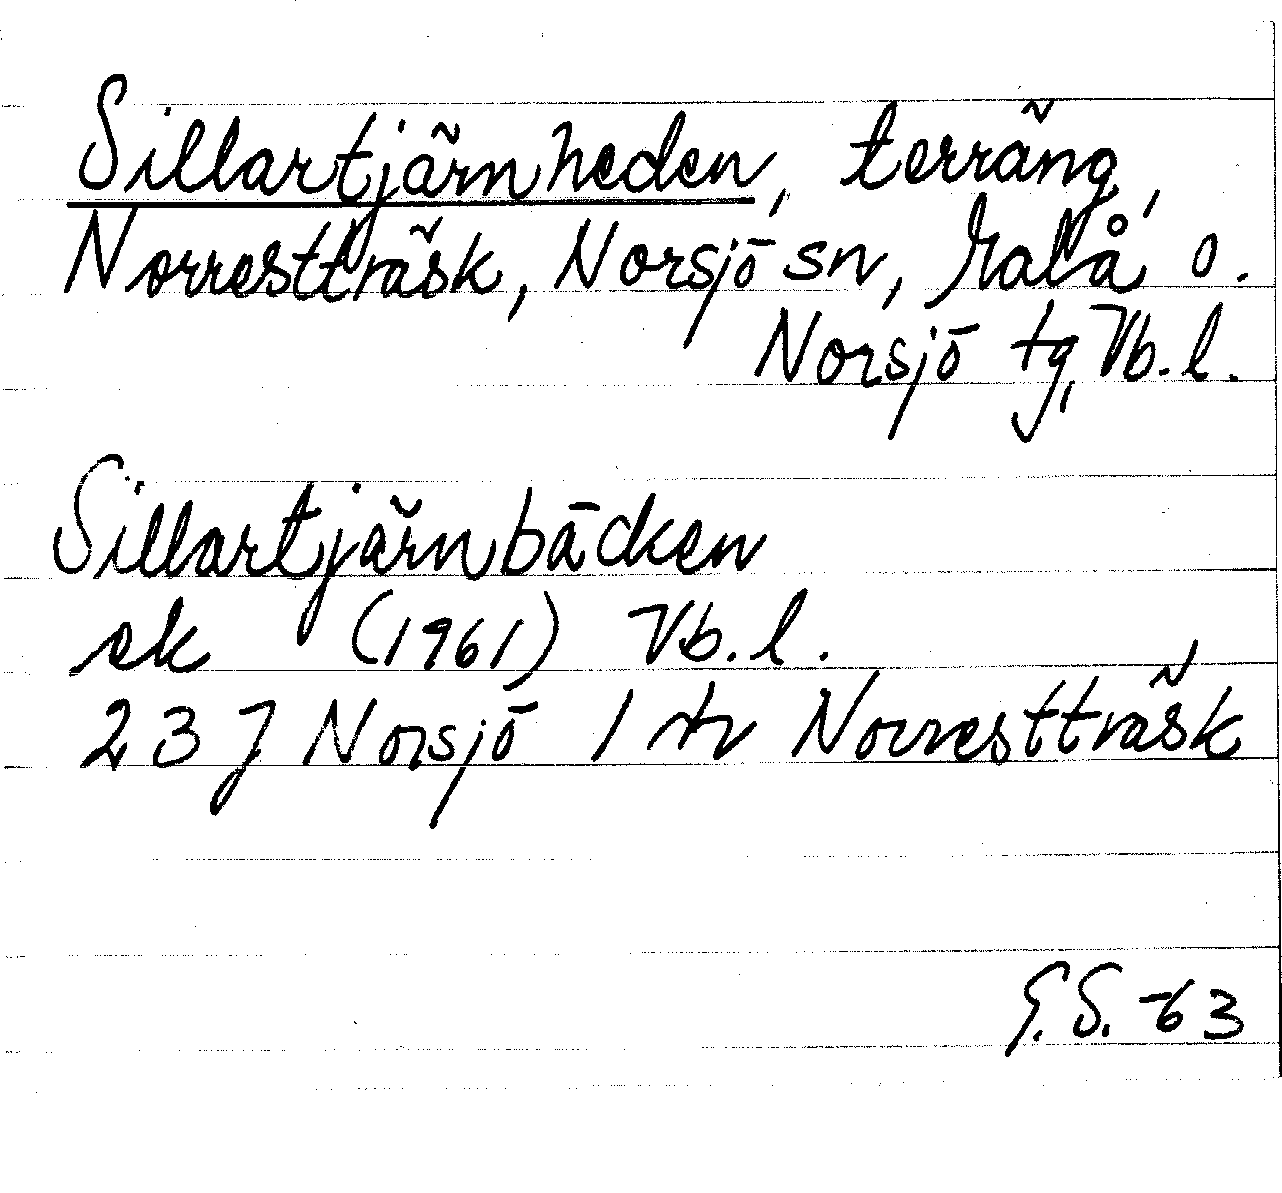 Sillartjärnheden, terräng,
Norrestträsk, Norsjö sn, Malå o.
Norsjö tg, Vb. l.
Sillartjärnbäcken
ek (1961) Vb. l.
23 J Norsjö 1 tr Norrestträsk
G. S. -63